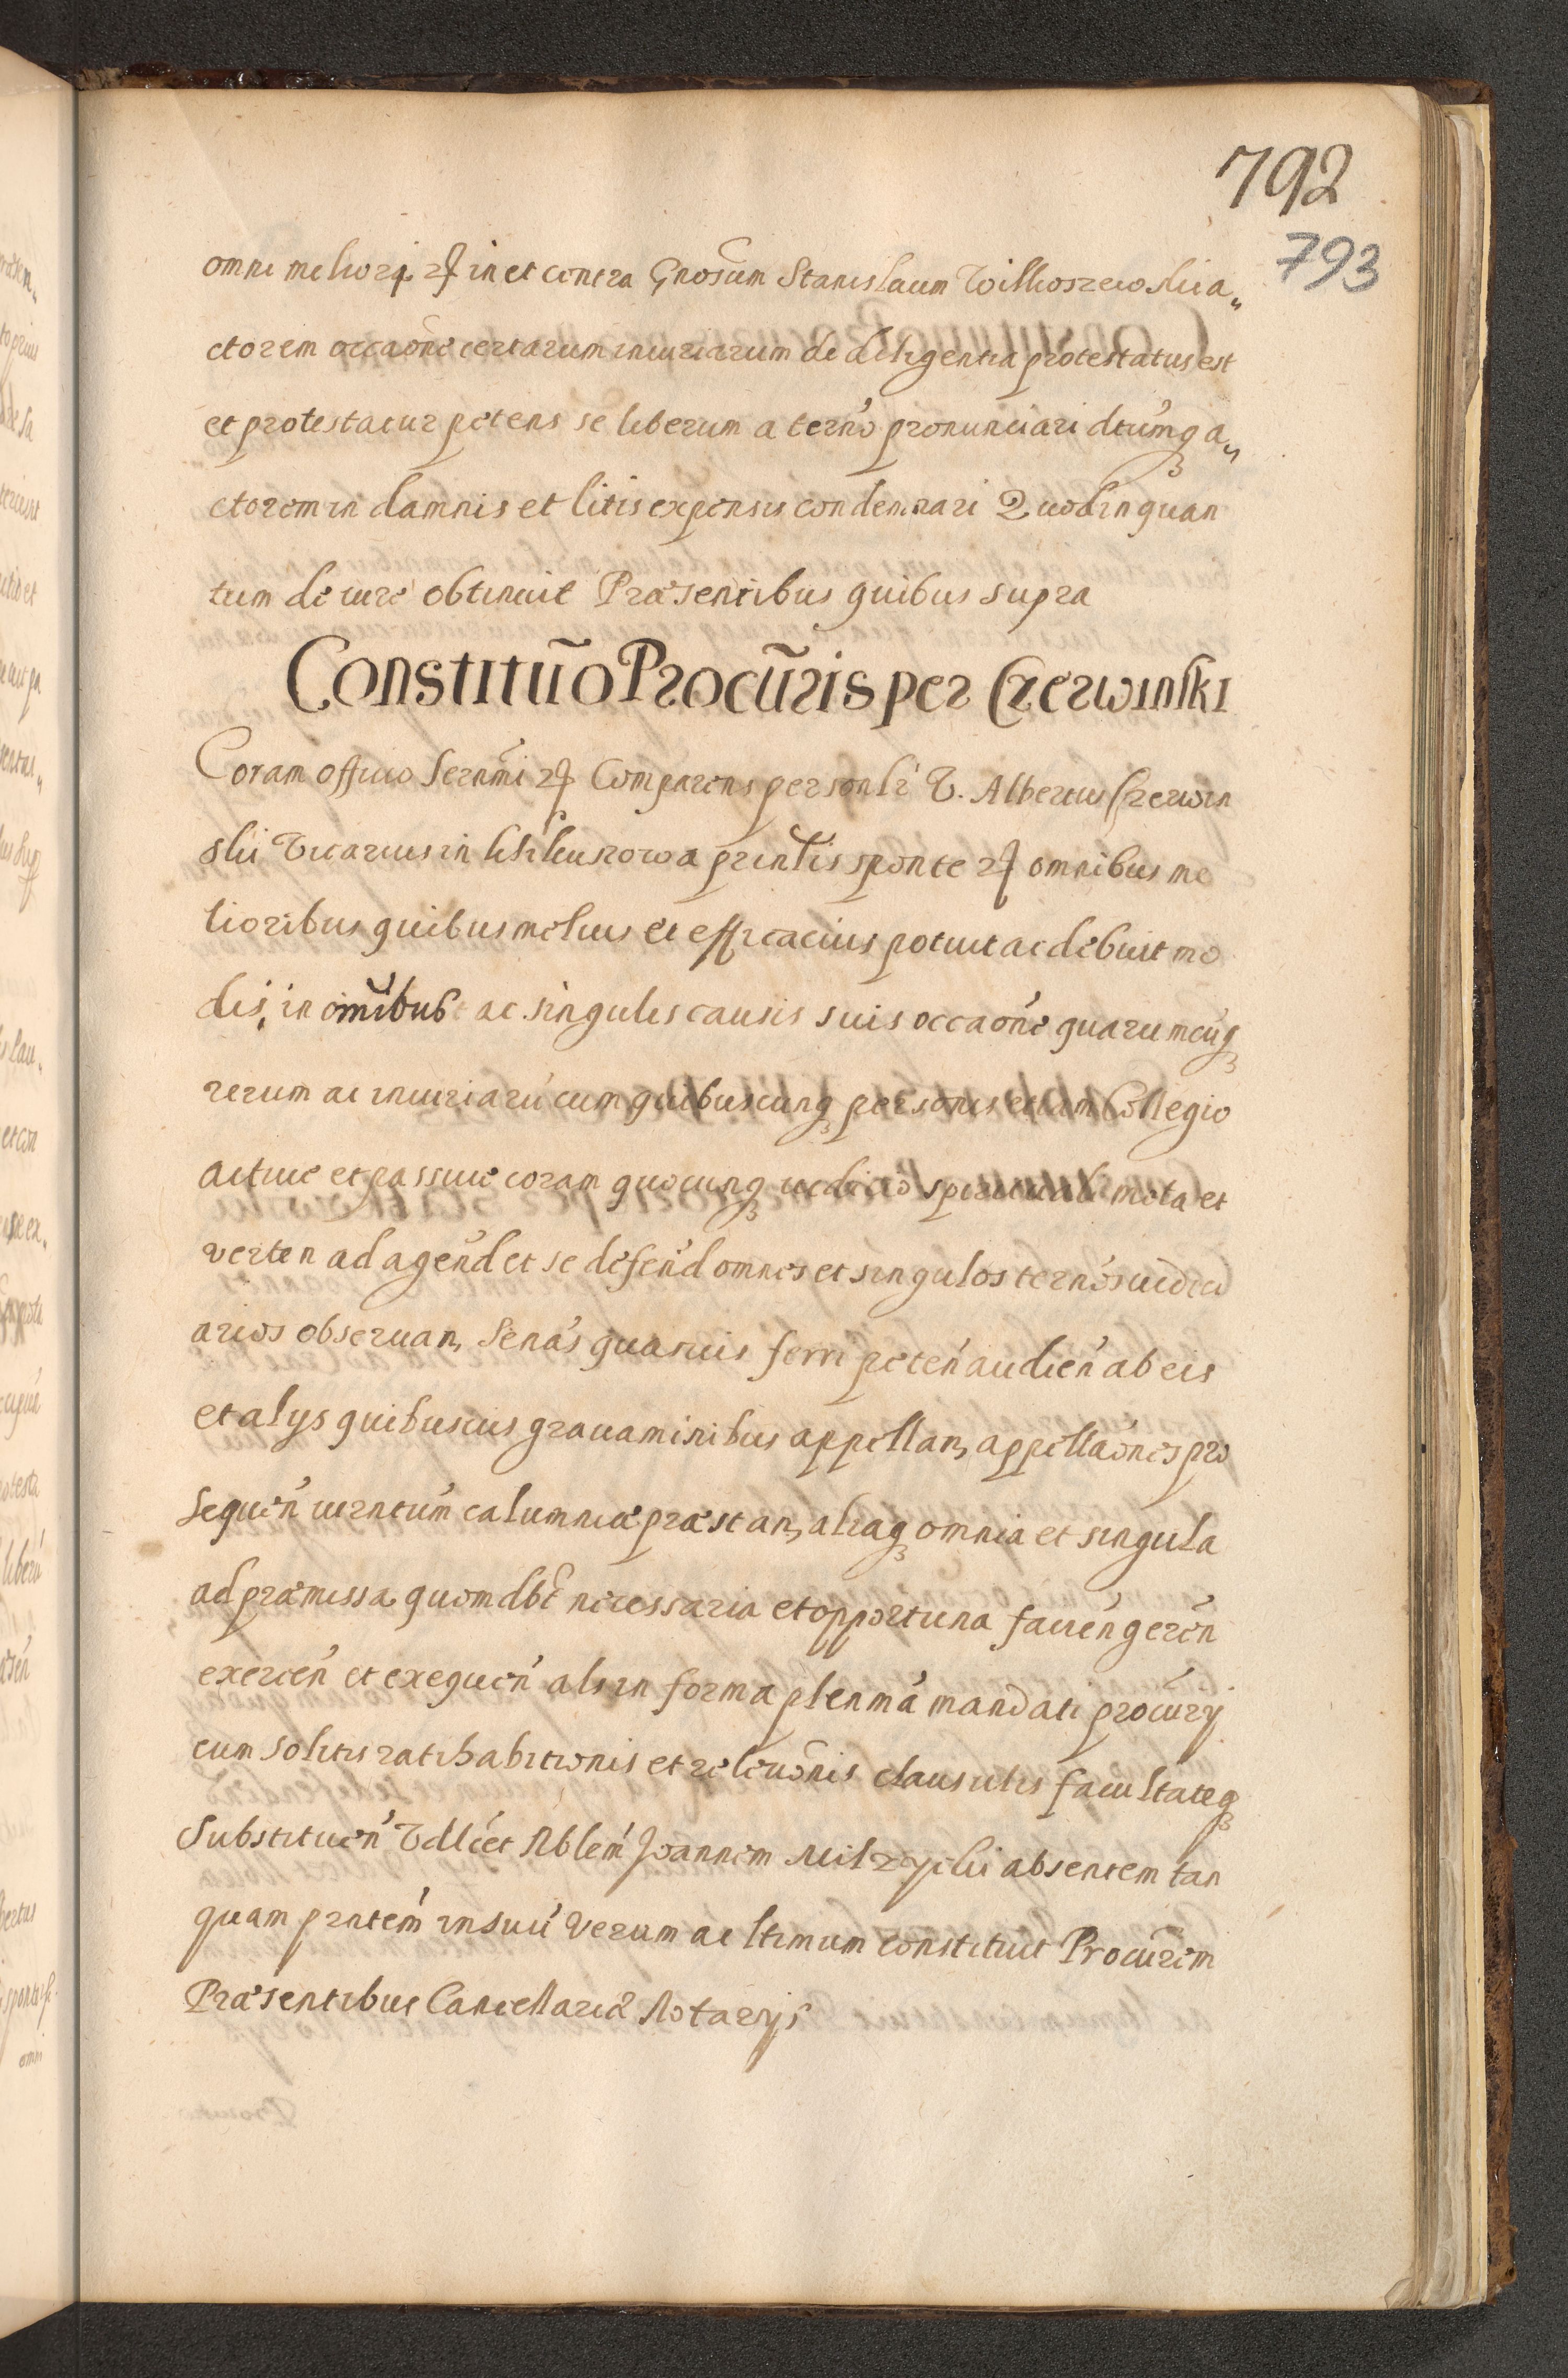 792
793
omni meliori etc in et contra Gnosum Stanislaum Wilkoszewski a„
ctorem occaone certarum iniuriarum de diligentia protestatus est
et protestatur petens se liberum a terno pronunciari dictumq a„
ctorem in damnis et litis expensis condemnari Quod in quan
tum de iure obtinuit Præsentibus quibus supra
Constitutio Procuris per Czerwinski
Coram officio Serenmi etc Comparens personlr V. Albertus Czerwin
ski Vicarius in prinlis sponte etc omnibus me
lioribus quibus melius et efficacius potuit ac debuit mo
dis, in omibus ac singulis causis suis occaone quarumcuq
rerum ac iniuriaru cum quibuscunq personis etiam Collegio
active et passive coram quocunq iudicio spirituali mota et
verten ad agend et se defend omnes et singulos ternos iudici
arios obseruan, Senas quasuis ferri peten audien ab eis
et alys quibusuis grauaminibus appellan, appellaones pro
sequen iurntum calumniæ præstan, aliaq omnia et singula
ad præmissa quomdbt necessaria et opportuna facien geren
exercen et exequen als in forma plenma mandati procury
cum solitis ratihabitionis et releuonis clausulis facultateq
Substituen Vdlicet Nblem Joannem absentem tan
quam prntem in suu verum ac ltimum constituit Procurem
Præsentibus Cancellariæ Notarijs